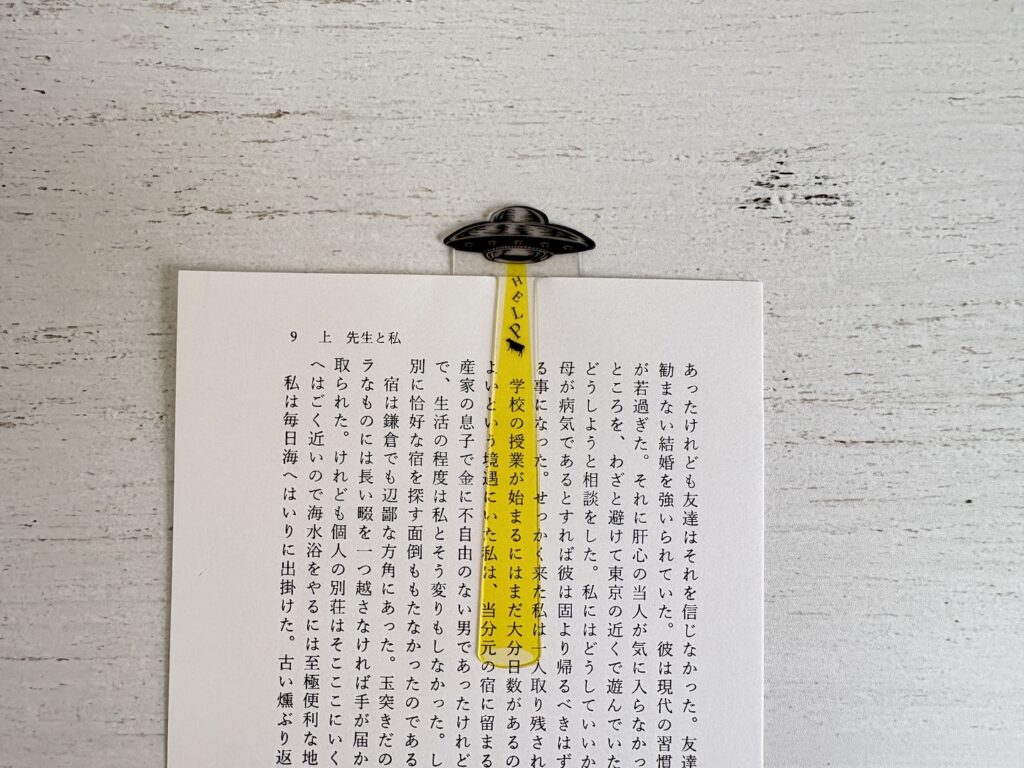 HELP
9 上 先生と私
あったけれども友達はそれを信じなかった。友達
勧まない結婚を強いられていた。彼は現代の習慣
が若過ぎた。それに肝心の当人が気に入らなかっ
ところを、わざと避けて東京の近くで遊んでいた
どうしようと相談をした。私にはどうしていいか
母が病気であるとすれば彼は固より帰るべきはず
る事になった。せっかく来た私は一人取り残され
学校の授業が始まるにはまだ大分日数があるの
よいという境遇にいた私は、当分元の宿に留まる
産家の息子で金に不自由のない男であったけれど
で、生活の程度は私とそう変りもしなかった。し
別に恰好な宿を探す面倒ももたなかったのである
宿は鎌倉でも辺鄙な方角にあった。玉突きだの
ラなものには長い畷を一つ越さなければ手が届か
取られた。けれども個人の別荘はそこここにいく
へはごく近いので海水浴をやるには至極便利な地
私は毎日海へはいりに出掛けた。古い燻ぶり返